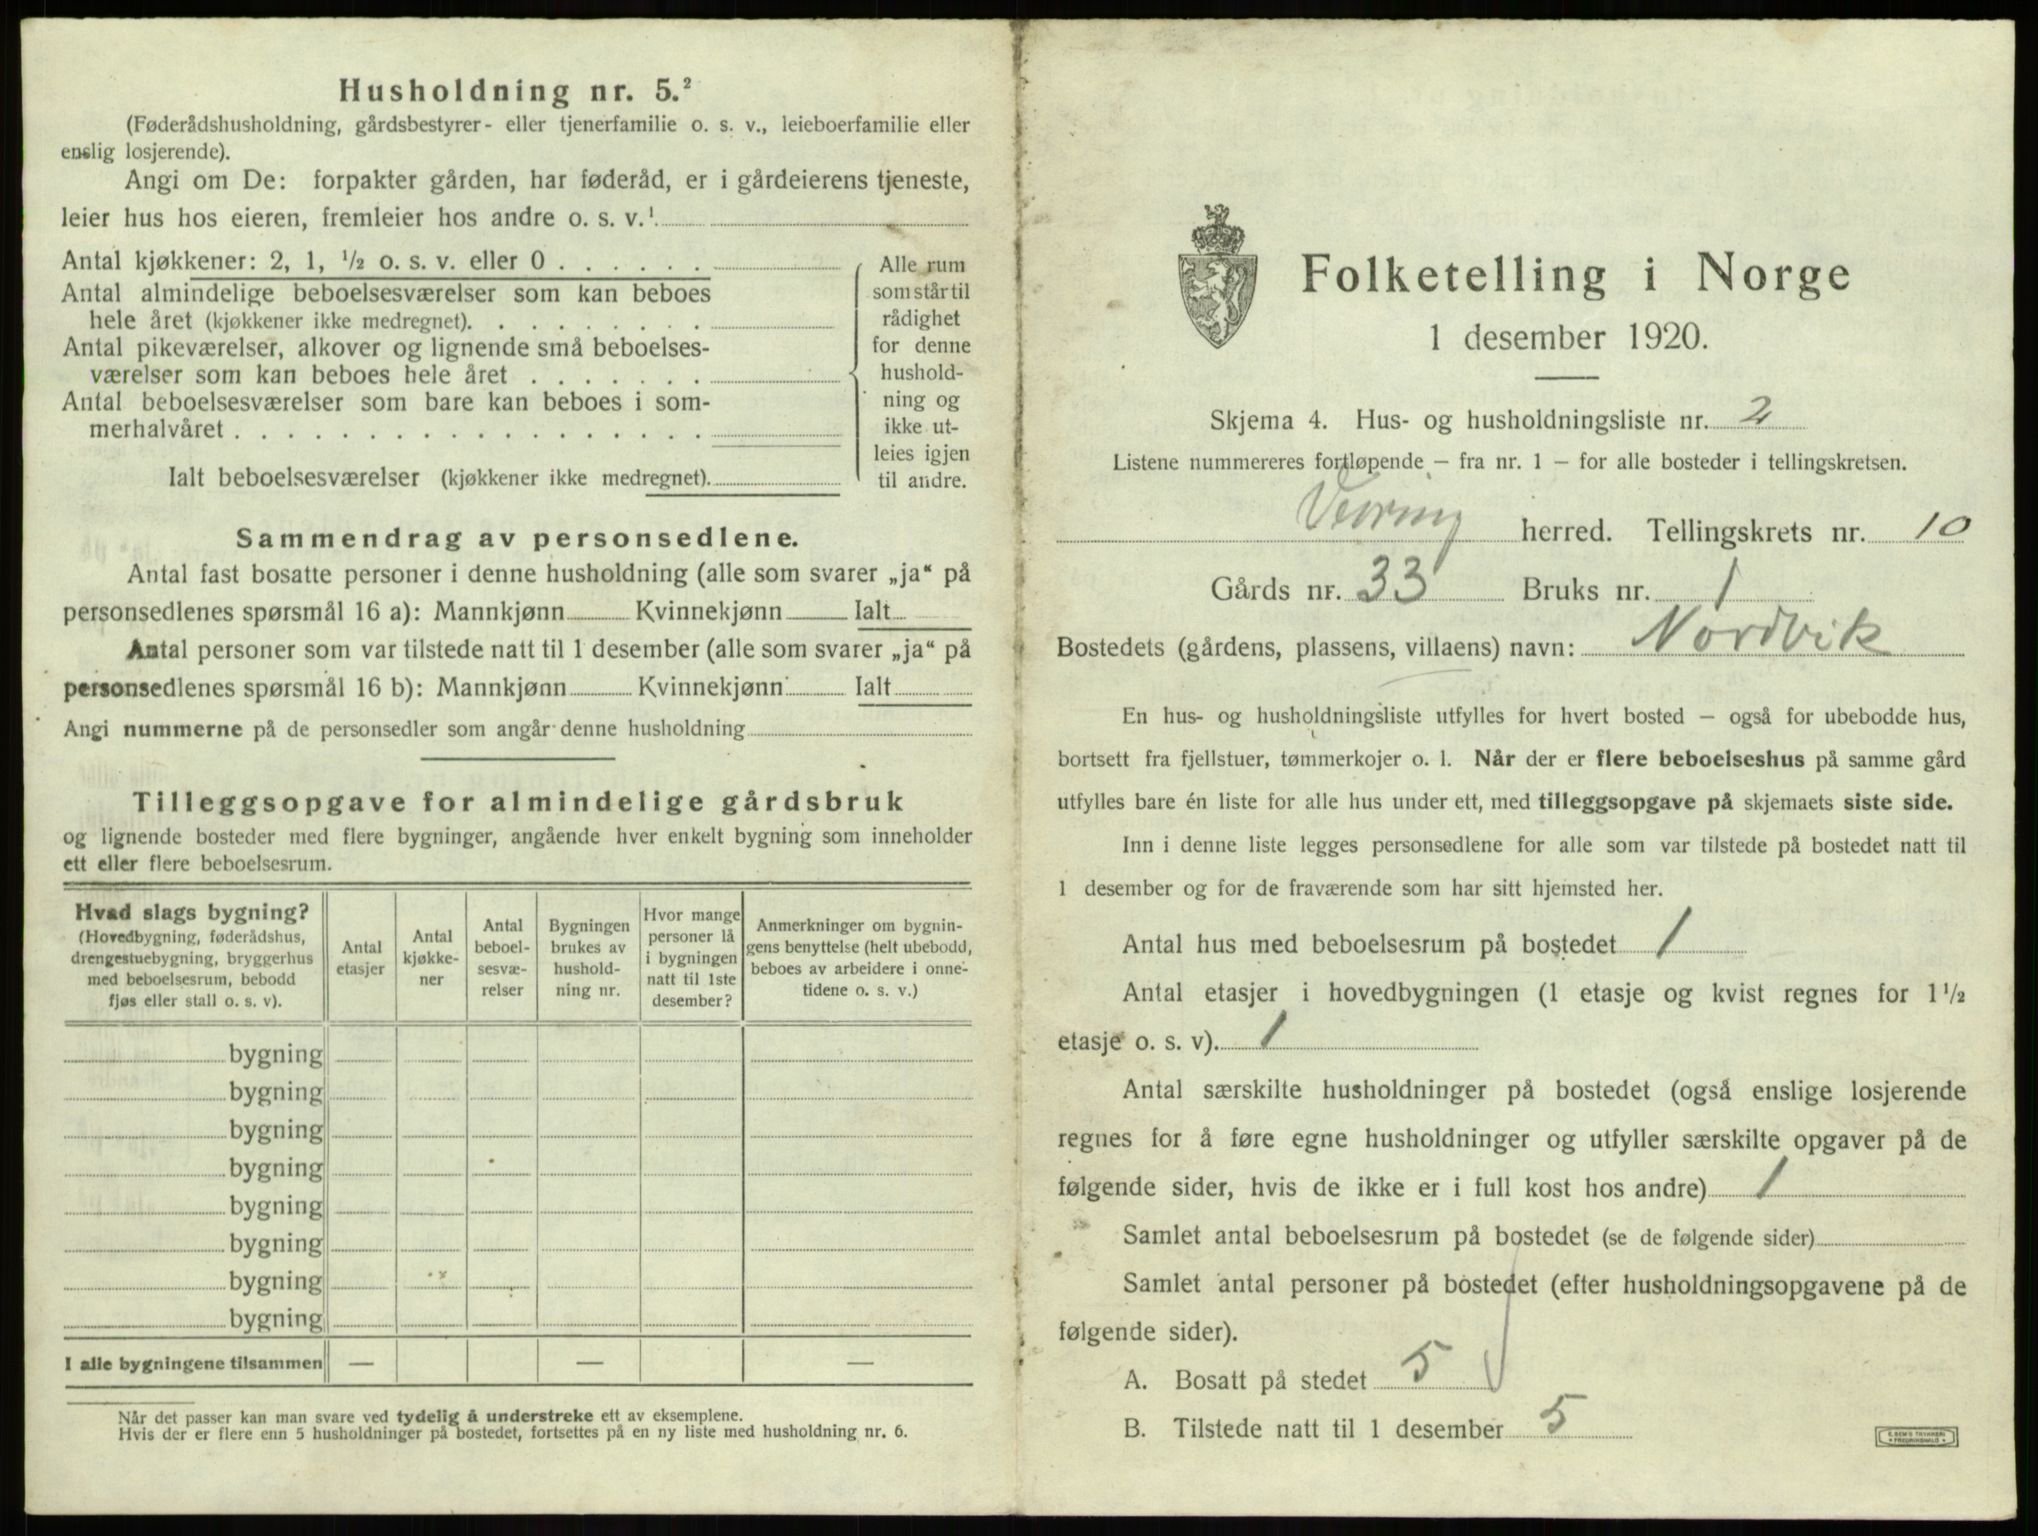 Husholdning nr. 5.²
(Føderådshusholdning, gårdsbestyrer- eller tjenerfamilie o. s. v., leieboerfamilie eller
enslig losjerende).
Angi om De: forpakter gården, har føderåd, er i gårdeierens tjeneste,
leier hus hos eieren, fremleier hos andre o. s. v.¹
Antal kjøkkener: 2, 1, ½ o. s. v. eller 0 . . . . . .
Antal almindelige beboelsesværelser som kan beboes
hele året (kjøkkener ikke medregnet). . . . . . . . .
Antal pikeværelser, alkover og lignende små beboelses-
værelser som kan beboes hele året . . . . . . .
Antal beboelsesværelser som bare kan beboes i som-
merhalvåret . . . . . . . . . . . . . . . . . .
Ialt beboelsesværelser (kjøkkener ikke medregnet).
Alle rum
som står til
rådighet
for denne
hushold-
ning og
ikke ut-
leies igjen
til andre.
Sammendrag av personsedlene.
Antal fast bosatte personer i denne husholdning (alle som svarer „ja“ på
personsedlenes spørsmål 16 a): Mannkjønn Kvinnekjønn Ialt
Antal personer som var tilstede natt til 1 desember (alle som svarer „ja“ på
personsedlenes spørsmål 16 b): Mannkjønn Kvinnekjønn Ialt
Angi nummerne på de personsedler som angår denne husholdning
Tilleggsopgave for almindelige gårdsbruk
og lignende bosteder med flere bygninger, angående hver enkelt bygning som inneholder
ett eller flere beboelsesrum.
Hvad slags bygning?
(Hovedbygning, føderådshus,
drengestuebygning, bryggerhus
med beboelsesrum, bebodd
fjøs eller stall o. s. v).
Antal
etasjer
Antal
kjøkke-
ner
Antal
beboel-
sesvæ-
relser
Bygningen
brukes av
hushold-
ning nr.
Hvor mange
personer lå
i bygningen
natt til 1ste
desember?
Anmerkninger om bygnin-
gens benyttelse (helt ubebodd,
beboes av arbeidere i onne-
tidene o. s. v.)
bygning
bygning
bygning
bygning
bygning
bygning
bygning
bygning
I alle bygningene tilsammen — — —
Når det passer kan man svare ved tydelig å understreke ett av eksemplene.
Hvis der er flere enn 5 husholdninger på bostedet, fortsettes på en ny liste med husholdning nr. 6.
Folketelling i Norge
1 desember 1920.
Skjema 4. Hus- og husholdningsliste nr. 2
Listene nummereres fortløpende — fra nr. 1 — for alle bosteder i tellingskretsen.
Vevring herred. Tellingskrets nr. 10
Gårds nr. 33 Bruks nr. 1
Bostedets (gårdens, plassens, villaens) navn: Nordvik
En hus- og husholdningsliste utfylles for hvert bosted — også for ubebodde hus,
bortsett fra fjellstuer, tømmerkojer o. l. Når der er flere beboelseshus på samme gård
utfylles bare én liste for alle hus under ett, med tilleggsopgave på skjemaets siste side.
Inn i denne liste legges personsedlene for alle som var tilstede på bostedet natt til
1 desember og for de fraværende som har sitt hjemsted her.
Antal hus med beboelsesrum på bostedet 1
Antal etasjer i hovedbygningen (1 etasje og kvist regnes for 1½
etasje o. s. v). 1
Antal særskilte husholdninger på bostedet (også enslige losjerende
regnes for å føre egne husholdninger og utfyller særskilte opgaver på de
følgende sider, hvis de ikke er i full kost hos andre) 1
Samlet antal beboelsesrum på bostedet (se de følgende sider)
Samlet antal personer på bostedet (efter husholdningsopgavene på de
følgende sider).
A. Bosatt på stedet 5
B. Tilstede natt til 1 desember 5